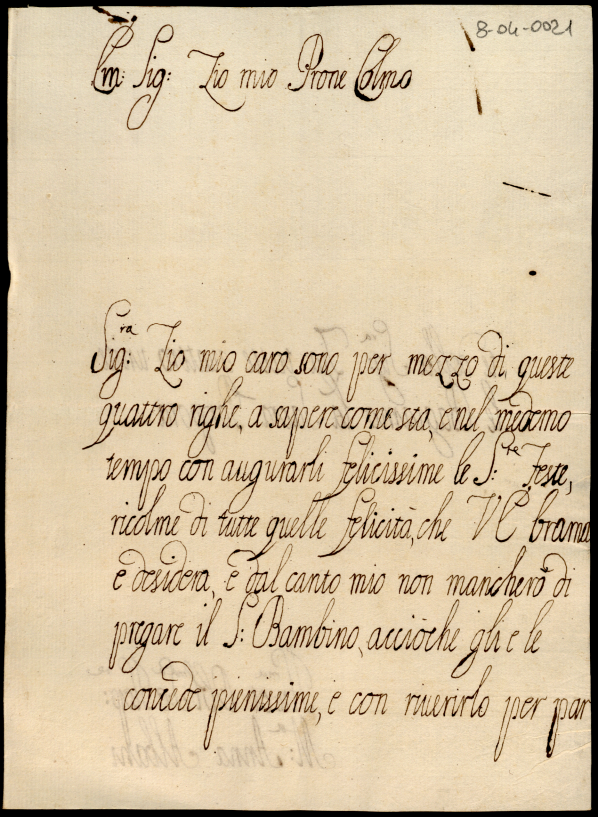 8-04-0021
Em: Sig: Zio mio Prone Colmo
Sig:ra Zio mio caro sono per mezzo di queste
quattro righe, a sapere come sta, e nel medemo
tempo con augurarli felicissime le S:te Feste,
ricolme di tutte quelle felicità, che VS brama
e desidera, e dal canto mio non mancherò di
pregare il S: Bambino, acciòche gli e le
concede pienissime, e con riverirlo per par
M:a Anna